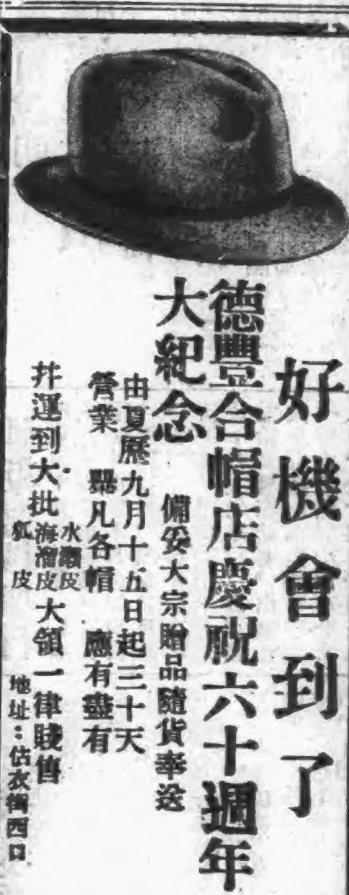 好機會到了
德豐合帽店慶祝六十週年
大紀念
備妥大宗贈品隨貨奉送
由夏歷九月十五日起三十天
營業 舉凡各帽 應有盡有
幷運到大批
水獺皮
海溜皮
狐皮
大領一律賤售
地址：估衣街西口